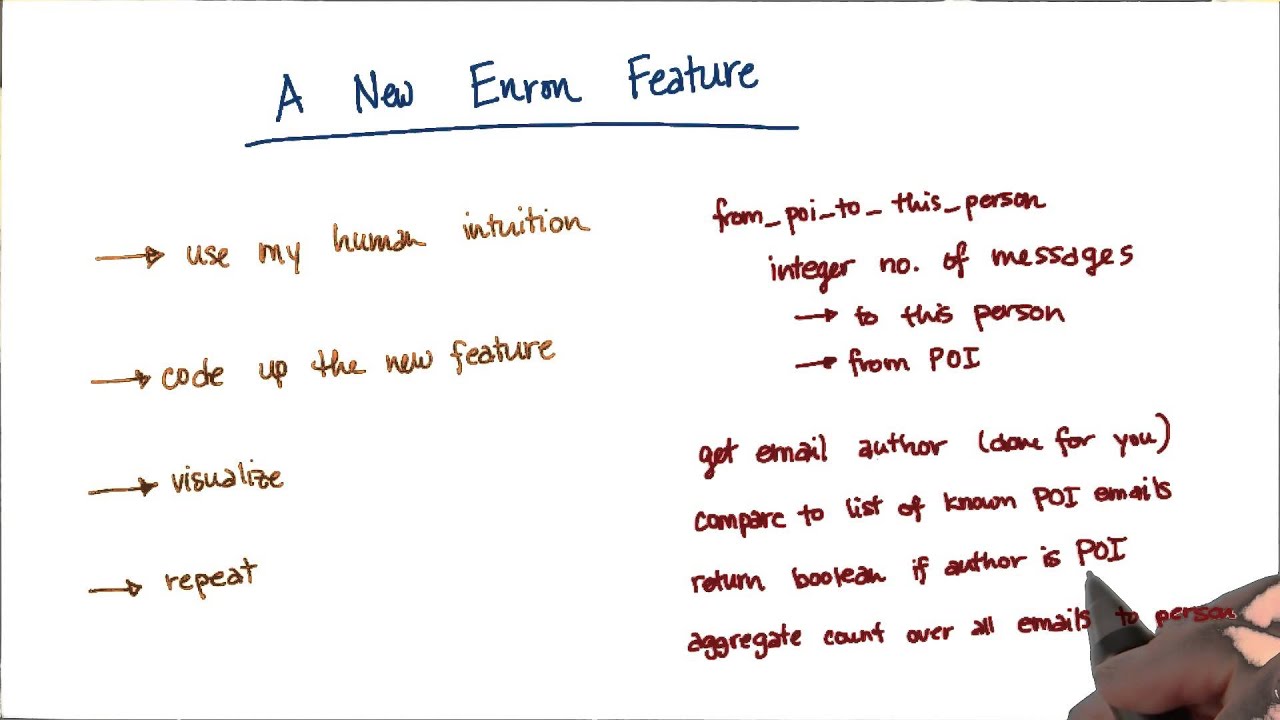 A New Enron Feature
→ use my human intuition
→ code up the new feature
→ visualize
→ repeat
from_poi_to_this_person
integer no. of messages
→ to this person
→ from POI
get email author (done for you)
compare to list of known POI emails
return boolean if author is POI
aggregate count over all emails to person